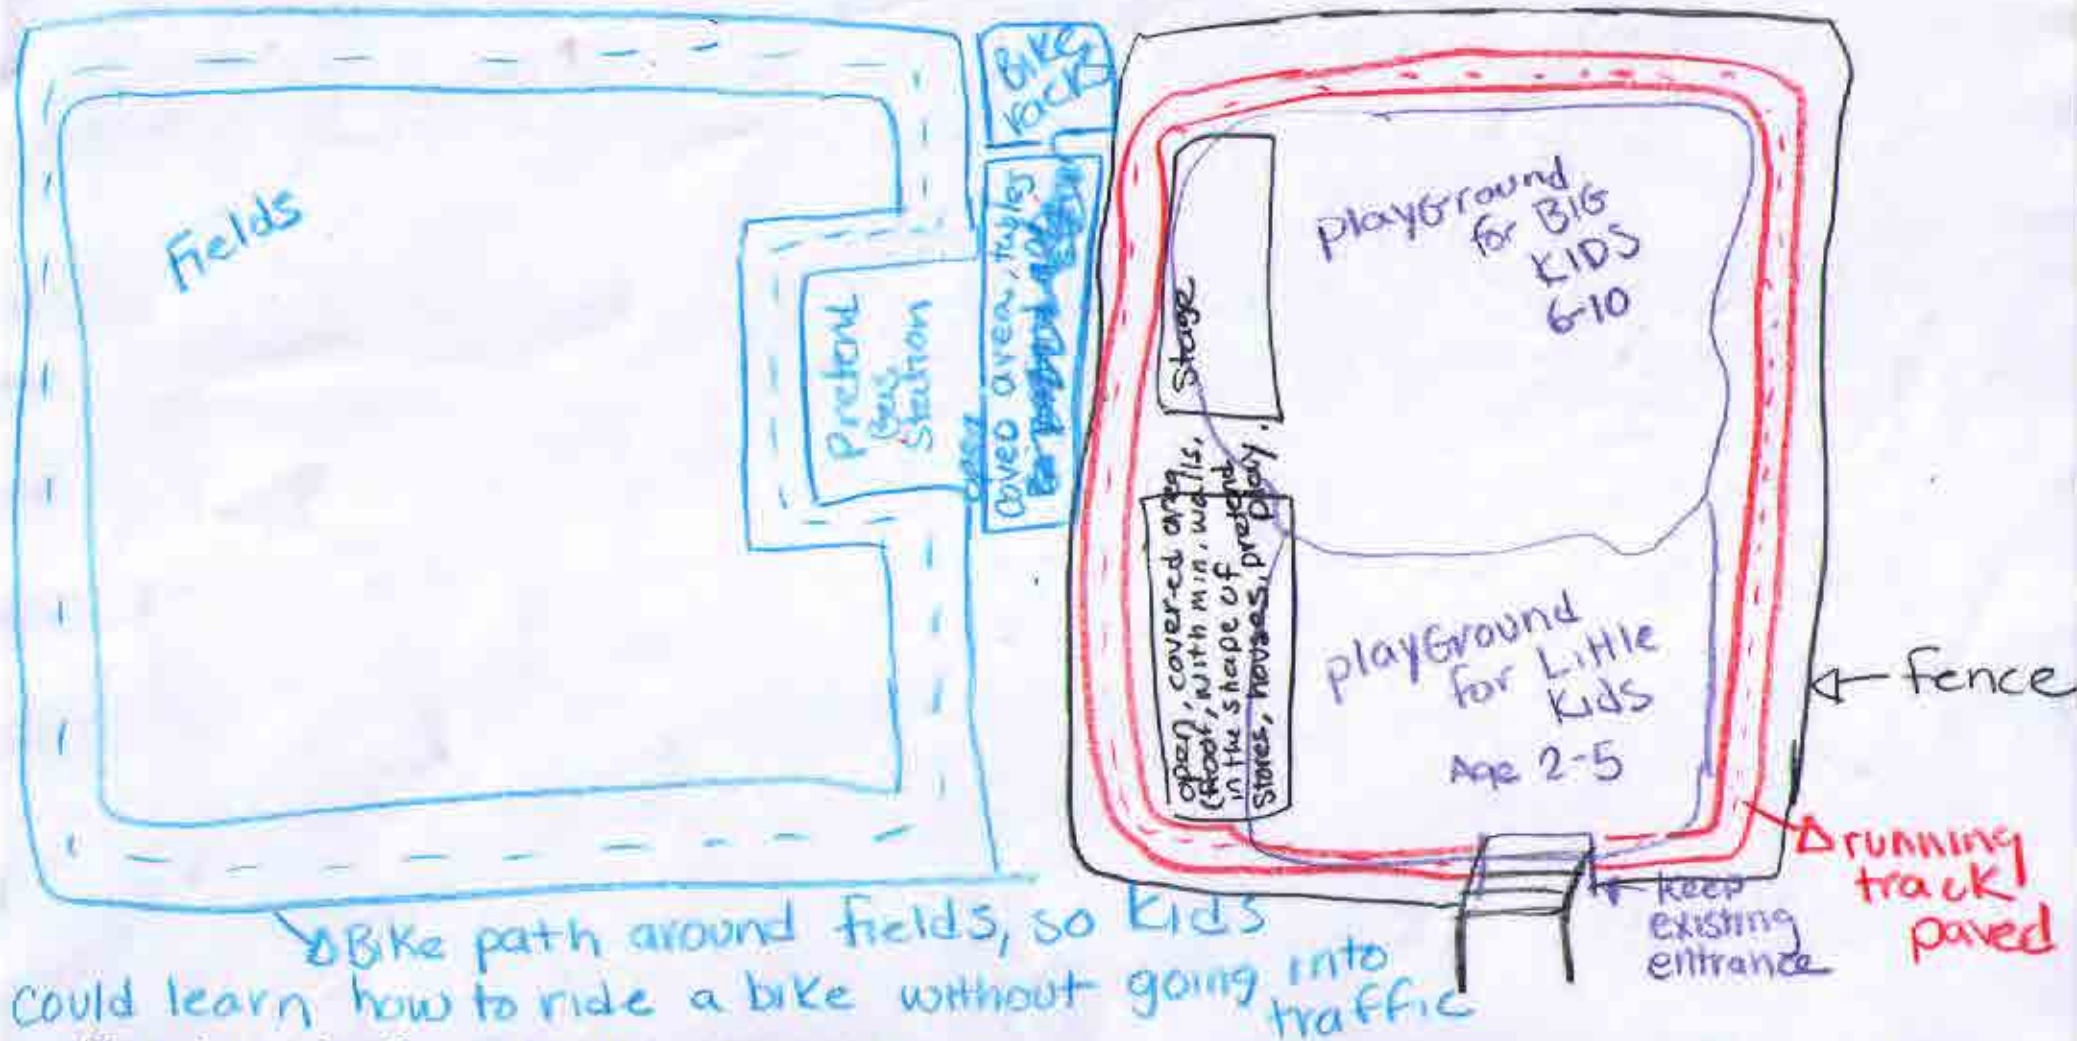 Fields
Pretend
Gas
Station
open
Bike
rack
Coved area, tables
Stage
playGround
for BIG
KIDS
6-10
open, covered area
(Roof, with min. walls,
in the shape of
Stores, houses, pretend
play.
playGround
for Little
Kids
Age 2-5
← fence
running
track
paved
keep
existing
entrance
Bike path around fields, so Kids
could learn how to ride a bike without going into
traffic